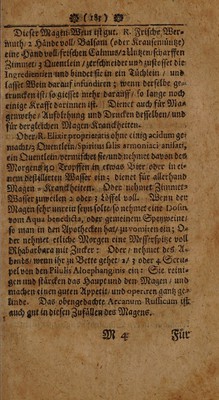 (183)
Dieser Magen-Wein ist gut. R. Frische Wer-
muth 2 Händ voll/ Balsam (oder Krausemüntze)
eine Hand voll/ frischen Calmus 2 Untzen/scharffen
Zimmet 2 Quentlein/ zerschneidet und zustosset die
Ingredientien und bindet sie in ein Tüchlein/ und
lasset Wein darauf infundiren; wenn derselbe ge-
truncken ist/ so giesset mehr darauf/ so lange noch
einige Krafft darinnen ist. Dienet auch für Ma-
genwehe/ Aufblehung und Drucken desselben/ und
für dergleichen Magen-Kranckheiten.
Oder/R. Elixir proprietatis ohne einig acidum ge-
macht 3 Quentlein/ Spiritus salis armoniaci anisati,
ein Quentlein/ vermischet sie/ und nehmet davon des
Morgens 10 Tropffen in etwas Bier/ oder in ei-
nem destillirten Wasser ein; dienet für allerhand
Magen-Kranckheiten. Oder nehmet Zimmet-
Wasser zuweilen 2 oder 3 Löffel voll. Wenn der
Magen sehr unrein seyn solte/ so nehmet eine Dosin
vom Aqua benedicta, oder gemeinem Speyweine/
so man in den Apothecken hat/ zu vomiren ein; O-
der nehmet etliche Morgen eine Messerspitze voll
Rhabarbara mit Zucker: Oder/ nehmet des A-
bends/ wenn ihr zu Bette gehet/ 2/ 3 oder 4 Scru-
pel von den Pilulis Aloephanginis ein: Sie reini-
gen und stärcken das Haupt und den Magen/ und
machen einen guten Appetit/ und operiren gantz ge-
linde. Das obengedachte Arcanum Russicum ist
auch gut in diesen Zufällen des Magens.
M 4 Für